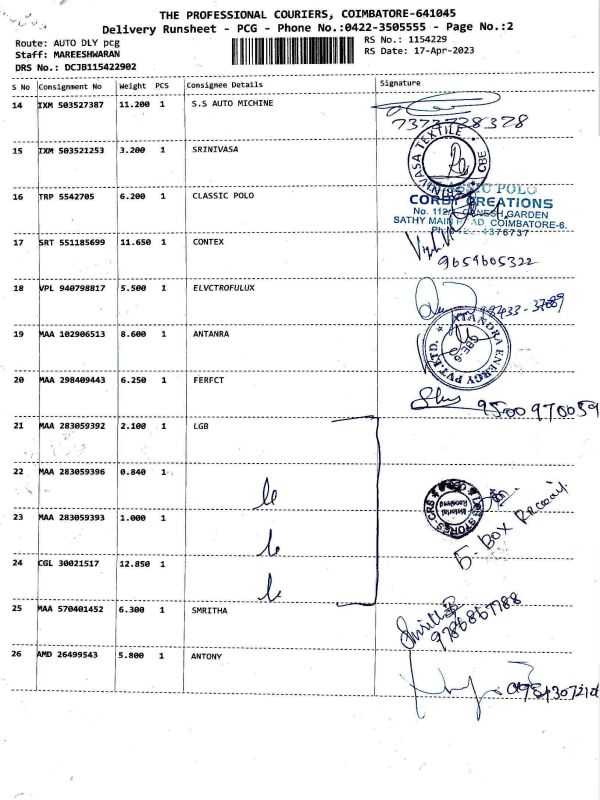 THE PROFESSIONAL COURIERS, COIMBATORE-641045
Delivery Runsheet - PCG - Phone No.:0422-3505555 - Page No.:2
Route: AUTO DLY pcg
RS No.: 1154229
Staff: MAREESHWARAN
RS Date: 17-Apr-2023
DRS No.: DCJB115422902
S No Consignment No Weight PCS Consignee Details Signature
14 IXM 503527387 11.200 1 S.S AUTO MICHINE
15 IXM 503521253 3.200 1 SRINIVASA
16 TRP 5542705 6.200 1 CLASSIC POLO
CORBY CREATIONS
SATHY MAIN ROAD COIMBATORE-6.
17 SRT 551185699 11.650 1 CONTEX
9659605322
18 VPL 940798817 5.500 1 ELVCTROFULUX
19 MAA 102906513 8.600 1 ANTANRA
20 MAA 298409443 6.250 1 FERFCT
9500970059
21 MAA 283059392 2.100 1 LGB
22 MAA 283059396 0.840 1
23 MAA 283059393 1.000 1
5. BOX
24 CGL 30021517 12.850 1
25 MAA 570401452 6.300 1 SMRITHA
26 AMD 26499543 5.800 1 ANTONY